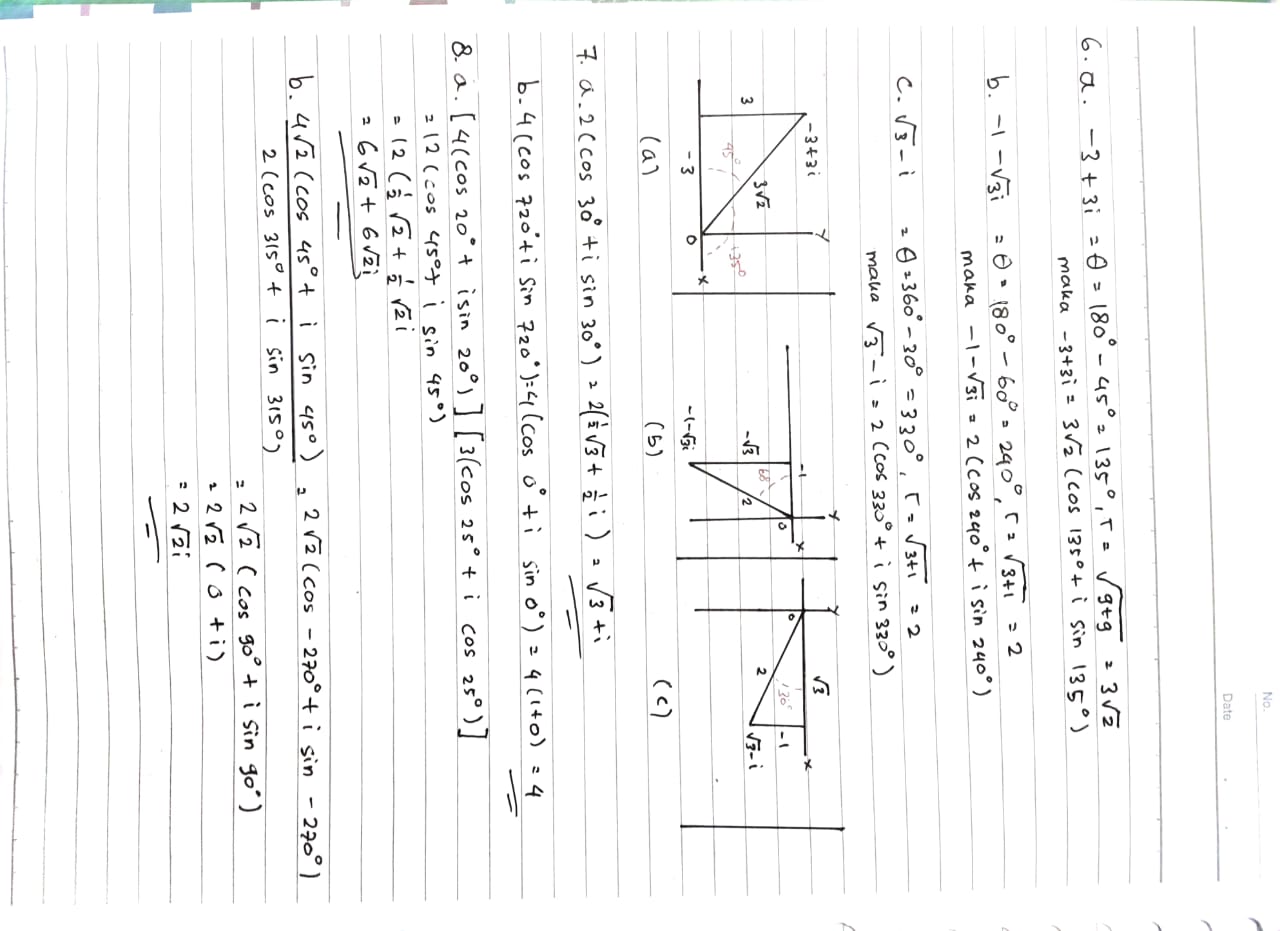 No.
Date
6. a. -3+3i = θ = 180° - 45° = 135°, r = √9+9 = 3√2
maka -3+3i = 3√2 (cos 135° + i sin 135°)
b. -1-√3i = θ = 180° - 60° = 240°, r = √3+1 = 2
maka -1-√3i = 2 (cos 240° + i sin 240°)
c. √3-i = θ = 360° - 30° = 330°, r = √3+1 = 2
maka √3-i = 2 (cos 330° + i sin 330°)
-3+3i Y 3 3√2 45° 135° -3 0 X
(a)
Y -1 0 X -√3 60° 2 -1-√3i
(b)
Y √3 0 X 30° -1 2 √3-i
(c)
7. a. 2 (cos 30° + i sin 30°) = 2(½√3 + ½ i) = √3 + i
b. 4 (cos 720° + i sin 720°) = 4 (cos 0° + i sin 0°) = 4 (1+0) = 4
8. a. [4(cos 20° + i sin 20°)] [3(cos 25° + i cos 25°)]
= 12 (cos 45° + i sin 45°)
= 12 (½ √2 + ½ √2i
= 6√2 + 6√2i
b. 4√2 (cos 45° + i sin 45°) = 2√2 (cos -270° + i sin -270°)
2 (cos 315° + i sin 315°)
= 2√2 (cos 90° + i sin 90°)
= 2√2 (0 + i)
= 2√2i